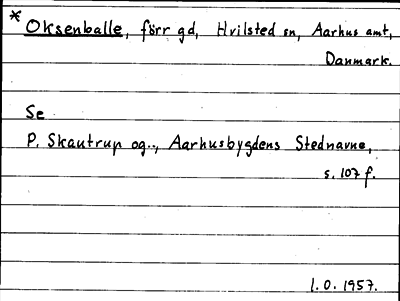 * Oksenballe, förr gd, Hvilsted sn, Aarhus amt,
Danmark.
Se
P. Skautrup og.., Aarhusbygdens Stednavne,
s. 107 f.
I.O. 1957.